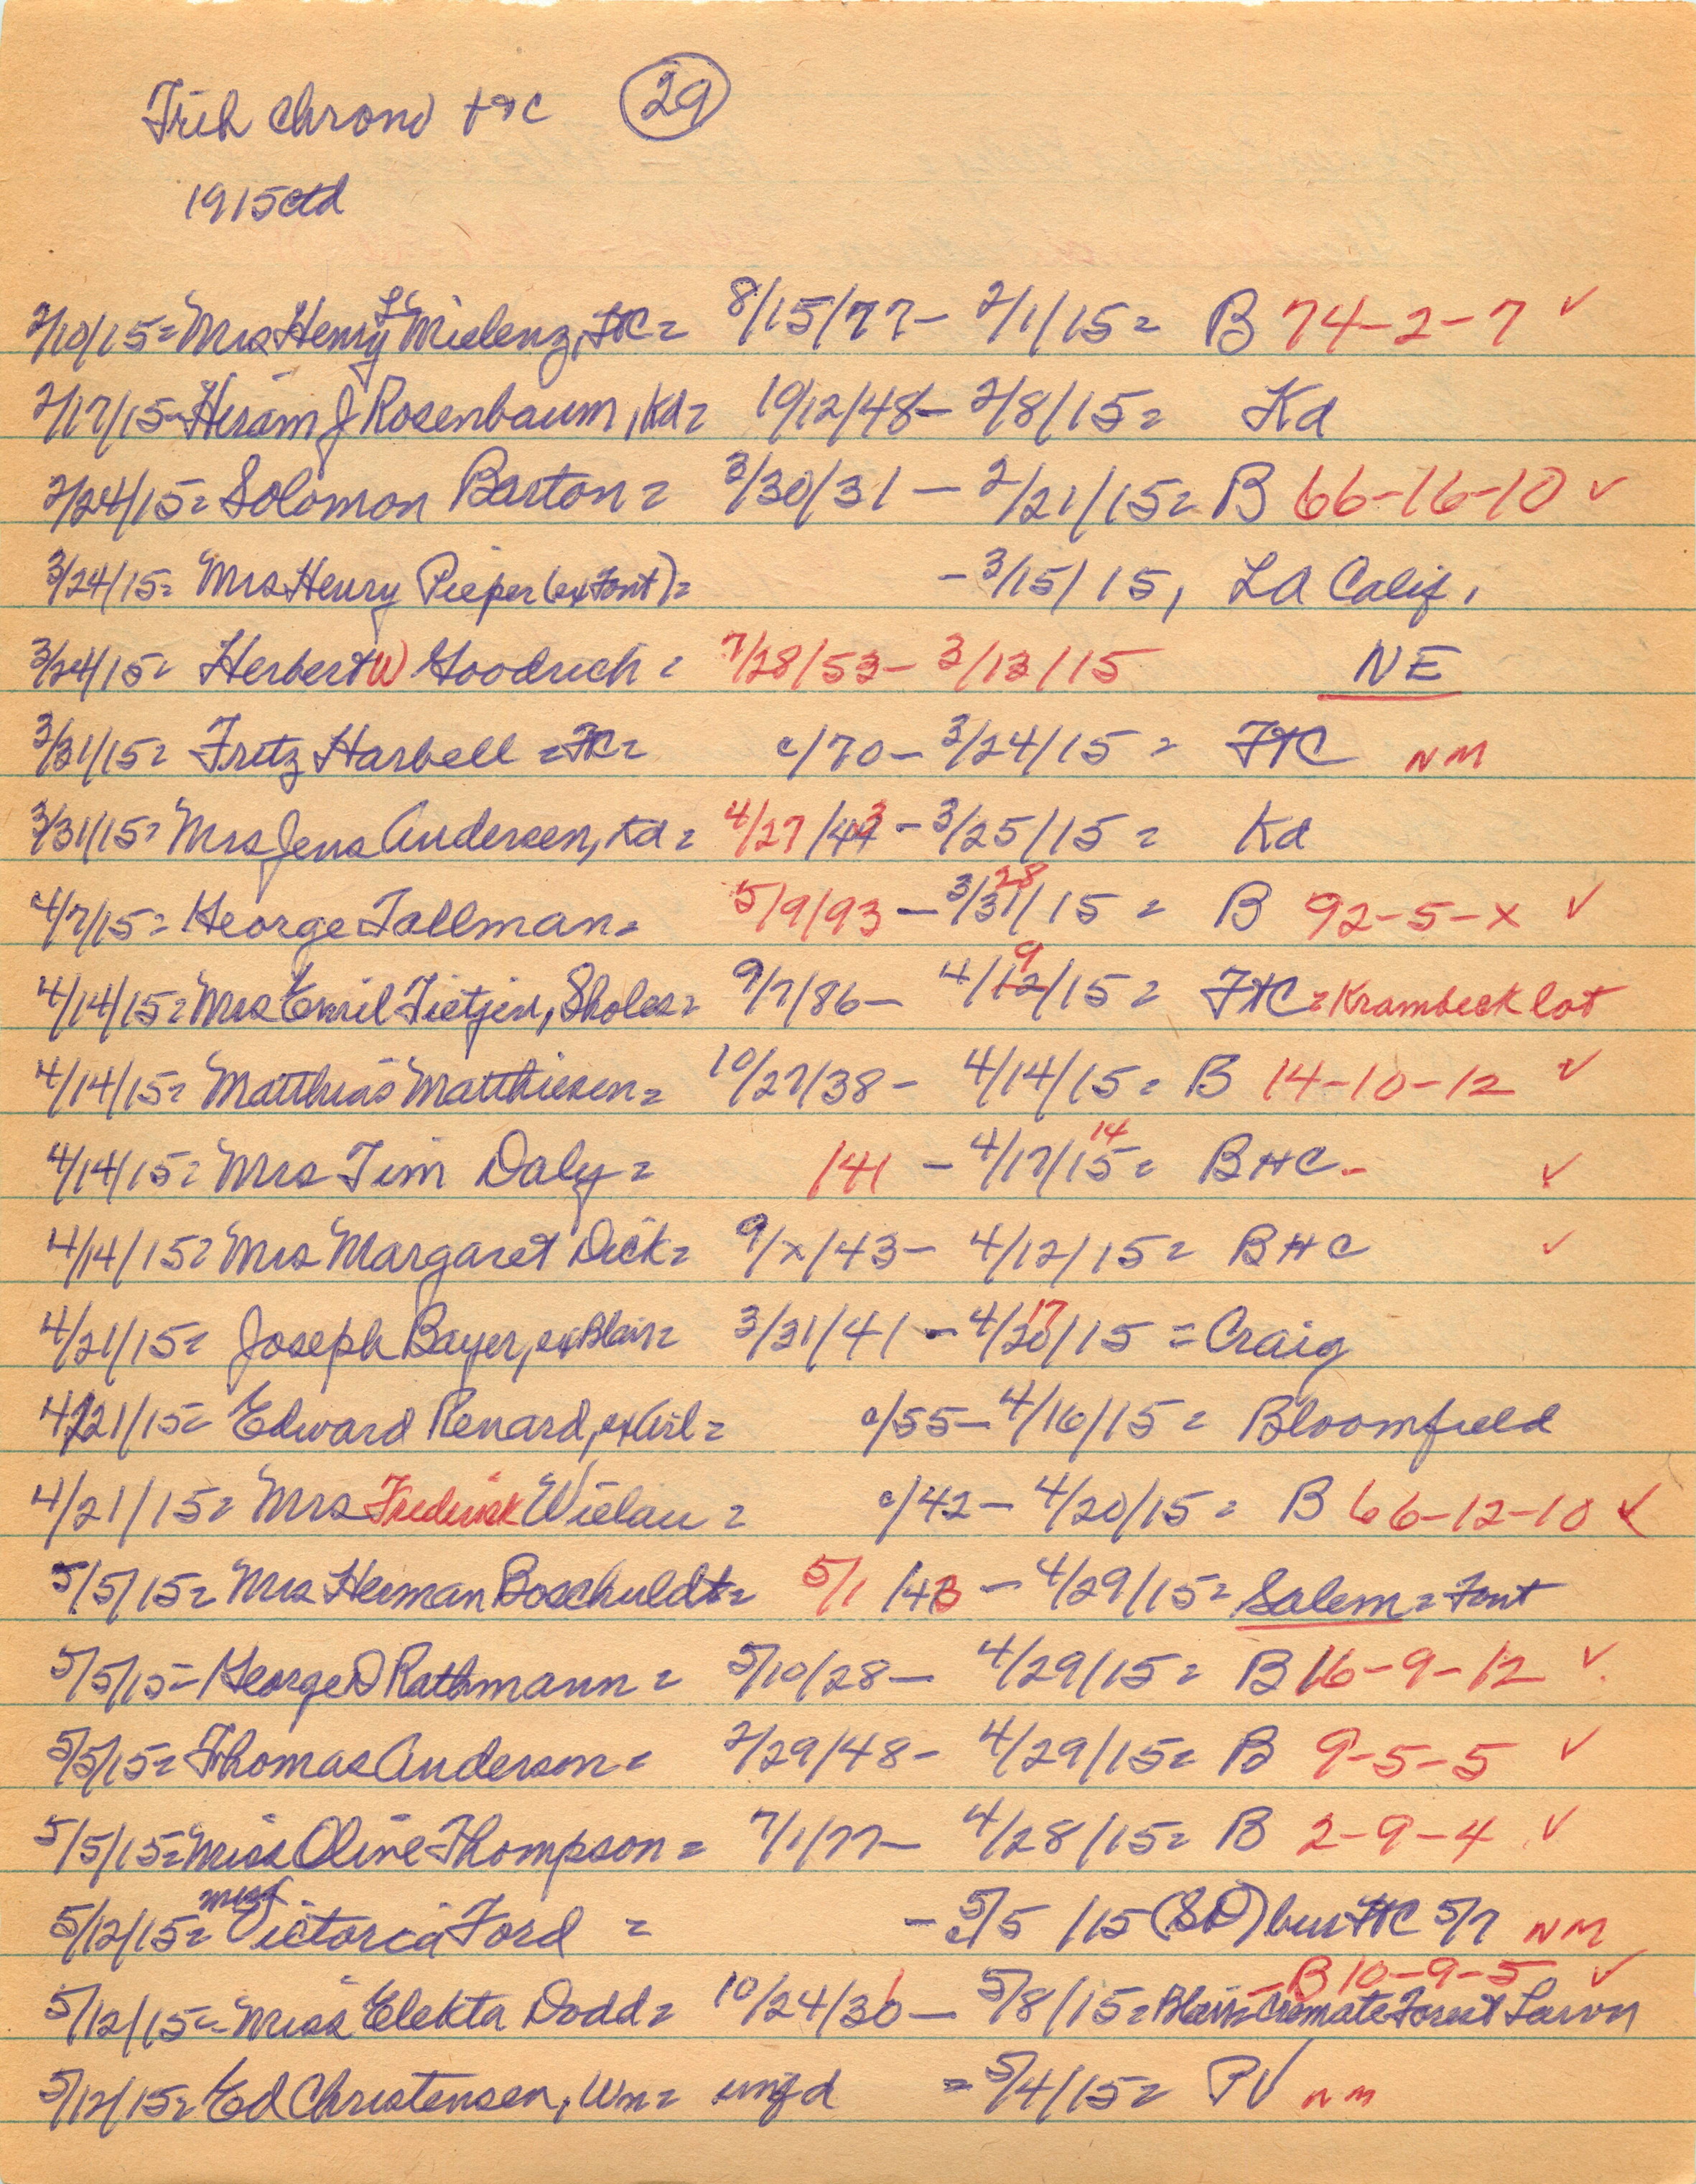 Trib Chrono 29
1915 ctd
2/10/15= Mrs Henry L Mielenz, FtC= 8/15/77- 2/1/15= B 74-2-7 ✓
2/17/15= Hiram J Rosenbaum, Kd= 10/12/48- 2/8/15= Kd
2/24/15= Solomon Barton= 3/30/31 - 2/21/15= B 66-16-10 ✓
3/24/15= Mrs Henry Pieper (ex Font)= -3/15/15, LA Calif.
3/24/15= Herbert W Goodrich= 7/28/53- 3/13/15 NE
3/31/15= Fritz Harbell = FtC= c/70- 3/24/15= FtC NM
3/31/15= Mrs Jens Andersen, Kd= 4/27/43 - 3/25/15= Kd
4/7/15= George Tallman= 5/9/93 - 3/31/15= 28 B 92-5-x ✓
4/14/15= Mrs Emil Tietjen, Sholes= 9/7/86- 4/12/15= 9 FtC = Krambeck lot
4/14/15= Matthias Matthiesen= 10/27/38- 4/14/15= B 14-10-12 ✓
4/14/15= Mrs Tim Daly= /41 - 4/17/15= 14 BHC - ✓
4/14/15= Mrs Margaret Dick= 9/x/43- 4/12/15= BHC ✓
4/21/15= Joseph Bayer, ex Blair= 3/31/41 - 4/20/15 17 = Craig
4/21/15= Edward Renard, ex Arl= c/55- 4/16/15= Bloomfield
4/21/15= Mrs Frederick Wielau= c/42- 4/20/15= B 66-12-10 ✓
5/5/15= Mrs Herman Boschuldt= 5/1/43 - 4/29/15= Salem= Font
5/5/15= George D Rathmann= 5/10/28- 4/29/15= B 16-9-12 ✓
5/5/15= Thomas Anderson= 2/29/48- 4/29/15= B 9-5-5 ✓
5/5/15= Miss Olive Thompson= 7/1/77- 4/28/15= B 2-9-4 ✓
5/12/15= Miss Victoria Ford = - 5/5/15 (SD) bur FtC 5/7 NM
5/12/15= Miss Elekta Dodd= 10/24/36- 5/8/15= Blair= Cremate Forest Lawn - B 10-9-5 ✓
5/12/15= Ed Christensen, Wn= unfd = 5/4/15= PV nm